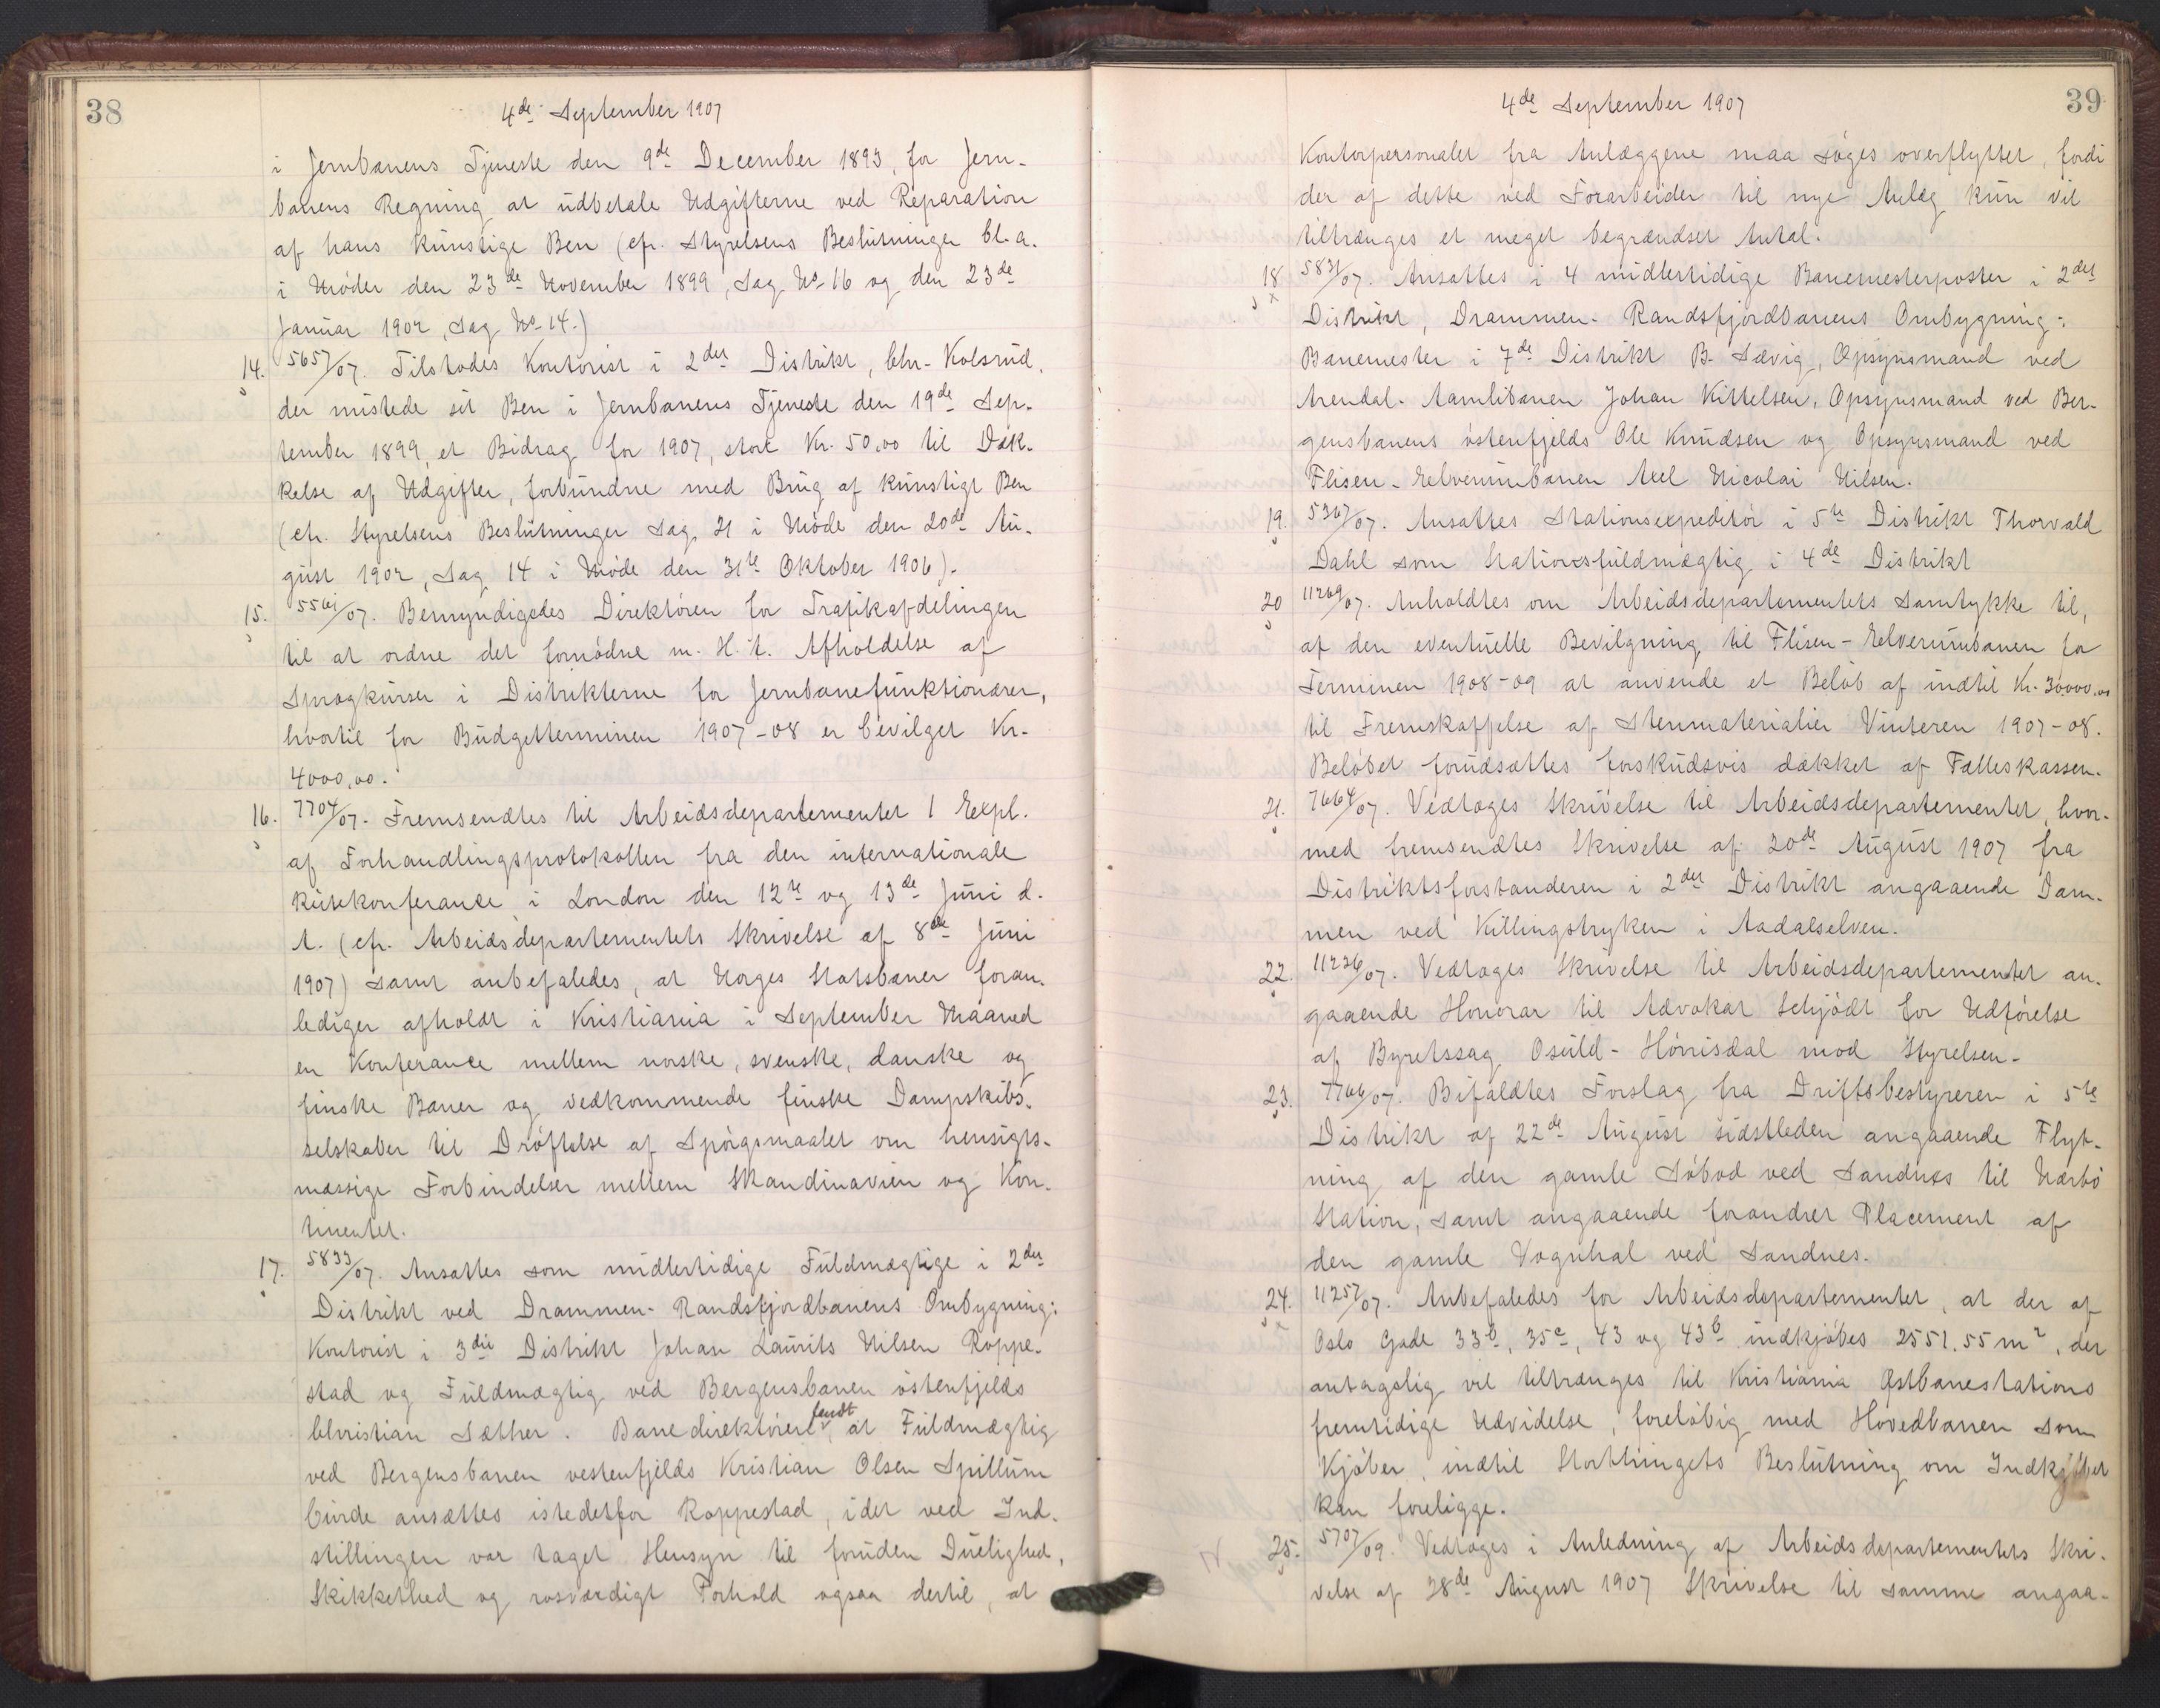 38
4de September 1907
i Jernbanens Tjeneste den 9de December 1893, for Jern-
banens Regning at udbetale Udgifterne ved Reparation
af hans kunstige Ben (cfr. Styrelsens Beslutninger bl.a.
i Møder den 23de November 1899, Sag No 16 og den 23de
Januar 1902, Sag No 14.)
14. 5657/07. Tilstodes Kontorist i 2det Distrikt, Chr. Kolsrud,
der mistede sit Ben i Jernbanens Tjeneste den 19de Sep-
tember 1899, et Bidrag for 1907, stort Kr. 50,00 til Dæk-
kelse af Udgifter, forbundne med Brug af kunstigt Ben
(cfr. Styrelsens Beslutninger Sag 21 i Møde den 20de Au-
gust 1902, Sag 14 i Møde den 31te Oktober 1906).
15. 5561/07. Bemyndigedes Direktøren for Trafikafdelingen
til at ordne det fornødne m. H. t. Afholdelse af
Sprogkurser i Distrikterne for Jernbanefunktionærer,
hvortil for Budgetterminen 1907-08 er bevilget Kr.
4000,00.
16. 7704/07. Fremsendtes til Arbeidsdepartementet 1 Expl.
af Forhandlingsprotokollen fra den internationale
Rutekonferance i London den 12te og 13de Juni d.
A. (cfr. Arbeidsdepartementets Skrivelse af 8de Juni
1907) samt anbefaledes, at Norges Statsbaner foran-
lediger afholdt i Kristiania i September Maaned
en Konferance mellem norske, svenske, danske og
finske Baner og vedkommende finske Dampskibs-
selskaber til Drøftelse af Spørgsmaalet om hensigts-
mæssige Forbindelser mellem Skandinavien og Kon-
tinentet.
17. 5833/07. Ansattes som midlertidige Fuldmægtige i 2det
Distrikt ved Drammen-Randsfjordbanens Ombygning:
Kontorist i 3die Distrikt Johan Laurits Nilsen Roppe-
stad og Fuldmægtig ved Bergensbanen østenfjelds
Christian Sæther. Banedirektøren fandt, at Fuldmægtig
ved Bergensbanen vestenfjelds Kristian Olsen Spillum
burde ansættes istedetfor Roppestad, idet ved Ind-
stillingen var taget Hensyn til foruden Duelighed,
Skikkethed og rosværdigt Forhold ogsaa dertil, at
39
4de September 1907
Kontorpersonalet fra Anlæggene maa søges overflyttet, fordi
der af dette ved Forarbeider til nye Anlæg kun vil
tiltrænges et meget begrændset Antal.
18 5831/07. Ansattes i 4 midlertidige Banemesterposter i 2det
Distrikt, Drammen-Randsfjordbanens Ombygning:
Banemester i 7de Distrikt B. Sævig, Opsynsmand ved
Arendal-Aamlibanen Johan Kittelsen, Opsynsmand ved Ber-
gensbanens østenfjelds Ole Knudsen og Opsynsmand ved
Flisen-Elverumbanen Axel Nicolai Nilsen.
19. 5367/07. Ansattes Stationsexpeditør i 5te Distrikt Thorvald
Dahl som Stationsfuldmægtig i 4de Distrikt
20 11269/07. Anholdtes om Arbeidsdepartementets Samtykke til,
af den eventuelle Bevilgning til Flisen-Elverumbanen for
Terminen 1908-09 at anvende et Beløb af indtil Kr. 30000.00
til Fremskaffelse af Stenmaterialier Vinteren 1907-08.
Beløbet forudsættes forskudsvis dækket af Fælleskassen.
21. 7664/07. Vedtoges Skrivelse til Arbeidsdepartementet, hvor-
med fremsendtes Skrivelse af 20de August 1907 fra
Distriktsforstanderen i 2det Distrikt angaaende Dam-
men ved Killingstryken i Aadalselven.
22. 11236/07. Vedtoges Skrivelse til Arbeidsdepartementet an-
gaaende Honorar til Advokat Schjødt for Udførelse
af Byretssag Osuld-Hørrisdal mod Styrelsen.
23. 7766/07. Bifaldtes Forslag fra Driftsbestyreren i 5te
Distrikt af 22de August sidstleden angaaende Flyt-
ning af den gamle Søbod ved Sandnes til Nærbø
Station, samt angaaende forandret Placement af
den gamle Vognhal ved Sandnes.
24. 11257/07. Anbefaledes for Arbeidsdepartementet, at der af
Oslo Gade 33b, 35c, 43 og 43b indkjøbes 2551.55 m2, der
antagelig vil tiltrænges til Kristiania Østbanestations
fremtidige Udvidelse, foreløbig med Hovedbanen som
Kjøber, indtil Storthingets Beslutning om Indkjøbet
kan foreligge.
25. 5707/09. Vedtoges i Anledning af Arbeidsdepartementets Skri-
velse af 28de August 1907 Skrivelse til samme angaa-